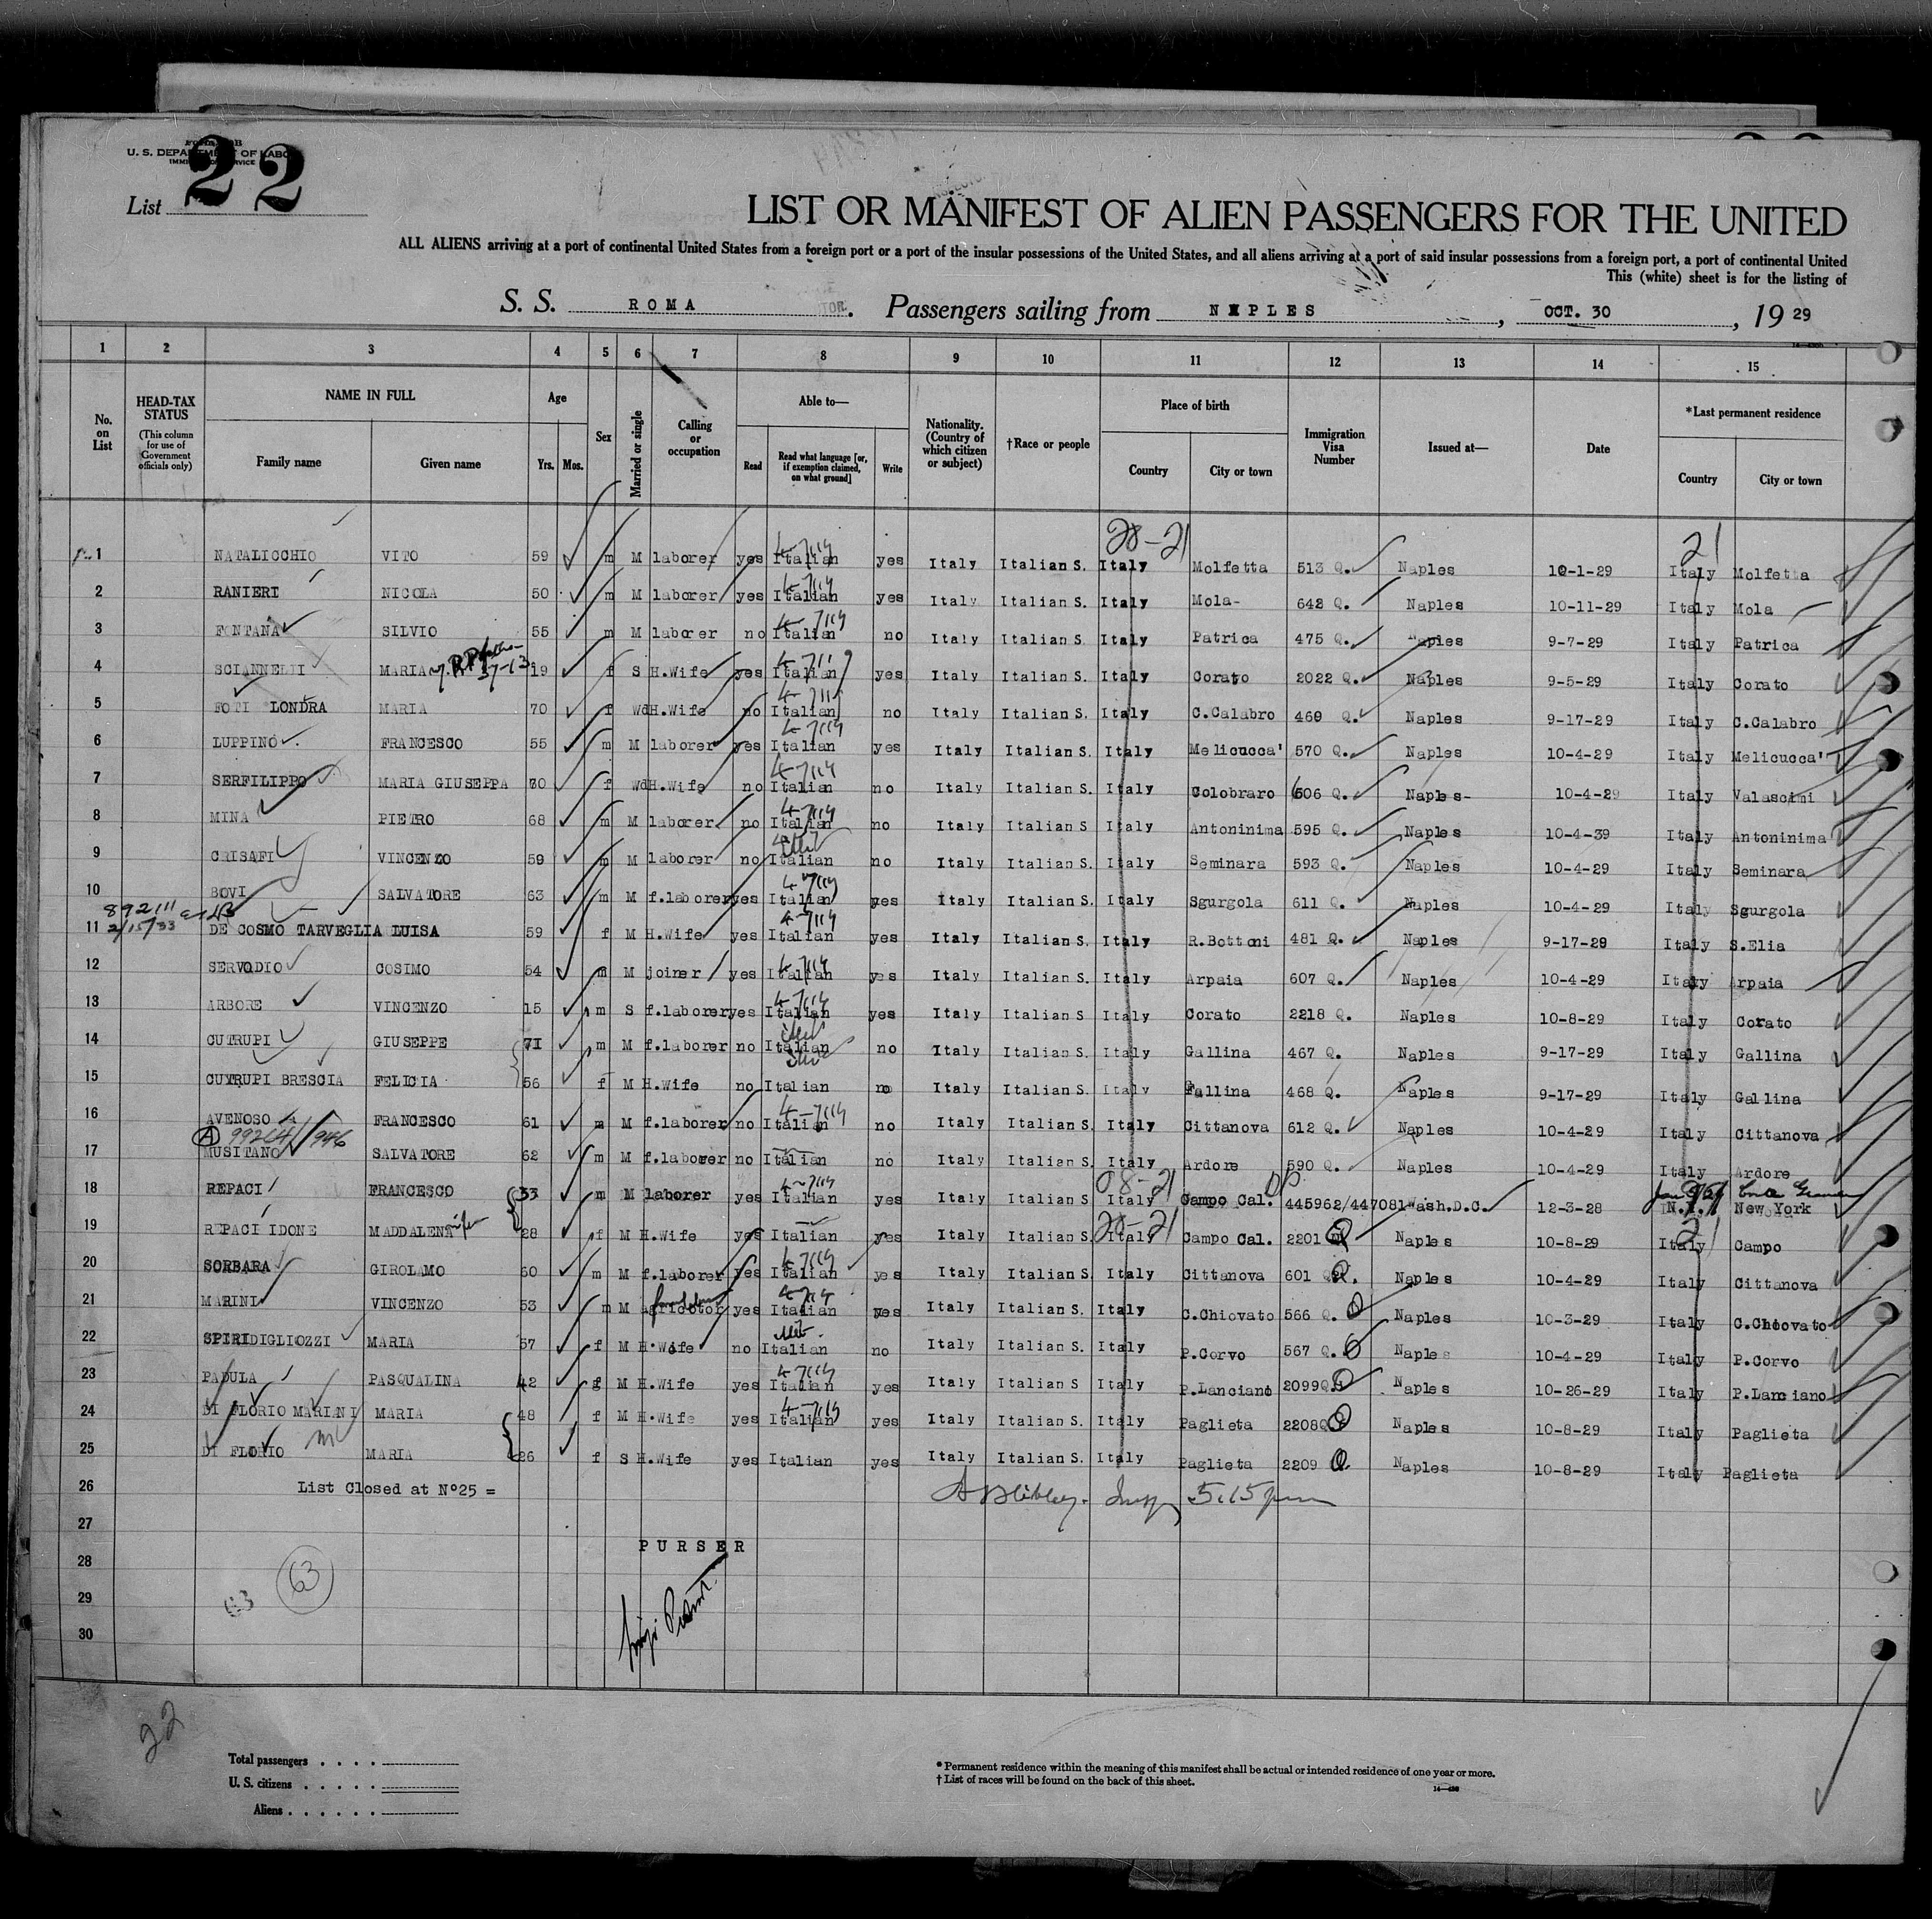 U. S. DEPARTMENT OF LABOR
IMMIGRATION SERVICE
List 22
LIST OR MANIFEST OF ALIEN PASSENGERS FOR THE UNITED
ALL ALIENS arriving at a port of continental United States from a foreign port or a port of the insular possessions of the United States, and all aliens arriving at a port of said insular possessions from a foreign port, a port of continental United
This (white) sheet is for the listing of
S. S. ROMA. Passengers sailing from NAPLES, OCT. 30, 19 29
1 2 3 4 5 6 7 8 9 10 11 12 13 14 15
No. on List
HEAD-TAX STATUS (This column for use of Government officials only)
NAME IN FULL
Family name Given name
Age
Yrs. Mos.
Sex
Married or single
Calling or occupation
Able to—
Read
Read what language [or, if exemption claimed, on what ground]
Write
Nationality. (Country of which citizen or subject)
†Race or people
Place of birth
Country City or town
Immigration Visa Number
Issued at—
Date
*Last permanent residence
Country City or town
28-21 21
1 NATALICCHIO VITO 59 m M laborer yes Italian yes Italy Italian S. Italy Molfetta 513 Q. Naples 10-1-29 Italy Molfetta
2 RANIERI NICOLA 50 m M laborer yes Italian yes Italy Italian S. Italy Mola- 642 Q. Naples 10-11-29 Italy Mola
3 FONTANA SILVIO 55 m M laborer no Italian no Italy Italian S. Italy Patrica 475 Q. Naples 9-7-29 Italy Patrica
4 SCIANNELII MARIA 19 f S H.Wife yes Italian yes Italy Italian S. Italy Corato 2022 Q. Naples 9-5-29 Italy Corato
5 FOTI LONDRA MARIA 70 f Wd H.Wife no Italian no Italy Italian S. Italy C.Calabro 469 Q. Naples 9-17-29 Italy C.Calabro
6 LUPPINO FRANCESCO 55 m M laborer yes Italian yes Italy Italian S. Italy Melicucca' 570 Q. Naples 10-4-29 Italy Melicucca'
7 SERFILIPPO MARIA GIUSEPPA 70 f Wd H.Wife no Italian no Italy Italian S. Italy Colobraro 606 Q. Naples- 10-4-29 Italy Valascimi
8 MINA PIETRO 68 m M laborer no Italian no Italy Italian S Italy Antoninima 595 Q. Naples 10-4-39 Italy Antoninima
9 CRISAFI VINCENZO 59 m M laborer no Italian no Italy Italian S. Italy Seminara 593 Q. Naples 10-4-29 Italy Seminara
10 BOVI SALVATORE 63 m M f.laborer yes Italian yes Italy Italian S. Italy Sgurgola 611 Q. Naples 10-4-29 Italy Sgurgola
892111
2/15/33
11 DE COSMO TARVEGLIA LUISA 59 f M H.Wife yes Italian yes Italy Italian S. Italy R.Bottoni 481 Q. Naples 9-17-29 Italy S.Elia
12 SERVODIO COSIMO 54 m M joiner yes Italian yes Italy Italian S. Italy Arpaia 607 Q. Naples 10-4-29 Italy Arpaia
13 ARBORE VINCENZO 15 m S f.laborer yes Italian yes Italy Italian S. Italy Corato 2218 Q. Naples 10-8-29 Italy Corato
14 CUTRUPI GIUSEPPE 71 m M f.laborer no Italian no Italy Italian S. Italy Gallina 467 Q. Naples 9-17-29 Italy Gallina
15 CUTRUPI BRESCIA FELICIA 56 f M H.Wife no Italian no Italy Italian S. Italy Fallina 468 Q. Naples 9-17-29 Italy Gallina
16 AVENOSO FRANCESCO 61 m M f.laborer no Italian no Italy Italian S. Italy Cittanova 612 Q. Naples 10-4-29 Italy Cittanova
17 MUSITANO SALVATORE 62 m M f.laborer no Italian no Italy Italian S. Italy Ardore 590 Q. Naples 10-4-29 Italy Ardore
08-21
18 REPACI FRANCESCO 33 m M laborer yes Italian yes Italy Italian S Italy Campo Cal. 445962/447081 Wash.D.C. 12-3-28 N.Y. New York
28-21 21
19 REPACI IDONE MADDALENA wife 28 f M H.Wife yes Italian yes Italy Italian S. Italy Campo Cal. 2201 Q Naples 10-8-29 Italy Campo
20 SORBARA GIROLAMO 60 m M f.laborer yes Italian yes Italy Italian S. Italy Cittanova 601 Q. Naples 10-4-29 Italy Cittanova
21 MARINI VINCENZO 53 m M agricotor yes Italian yes Italy Italian S. Italy C.Chiovato 566 Q. Naples 10-3-29 Italy C.Chiovato
22 SPIRIDIGLIOZZI MARIA 57 f M H.Wife no Italian no Italy Italian S. Italy P.Corvo 567 Q. Naples 10-4-29 Italy P.Corvo
23 PADULA PASQUALINA 42 f M H.Wife yes Italian yes Italy Italian S Italy P.Lanciano 2099 Q Naples 10-26-29 Italy P.Lanciano
24 DI FLORIO MARIANI MARIA 48 f M H.Wife yes Italian yes Italy Italian S. Italy Paglieta 2208 Q Naples 10-8-29 Italy Paglieta
25 DI FLORIO MARIA 26 f S H.Wife yes Italian yes Italy Italian S. Italy Paglieta 2209 Q Naples 10-8-29 Italy Paglieta
26 List Closed at N°25 = 5.15 pm
27
PURSER
28
63
29
63
30
22
Total passengers
U. S. citizens
Aliens
* Permanent residence within the meaning of this manifest shall be actual or intended residence of one year or more.
† List of races will be found on the back of this sheet.